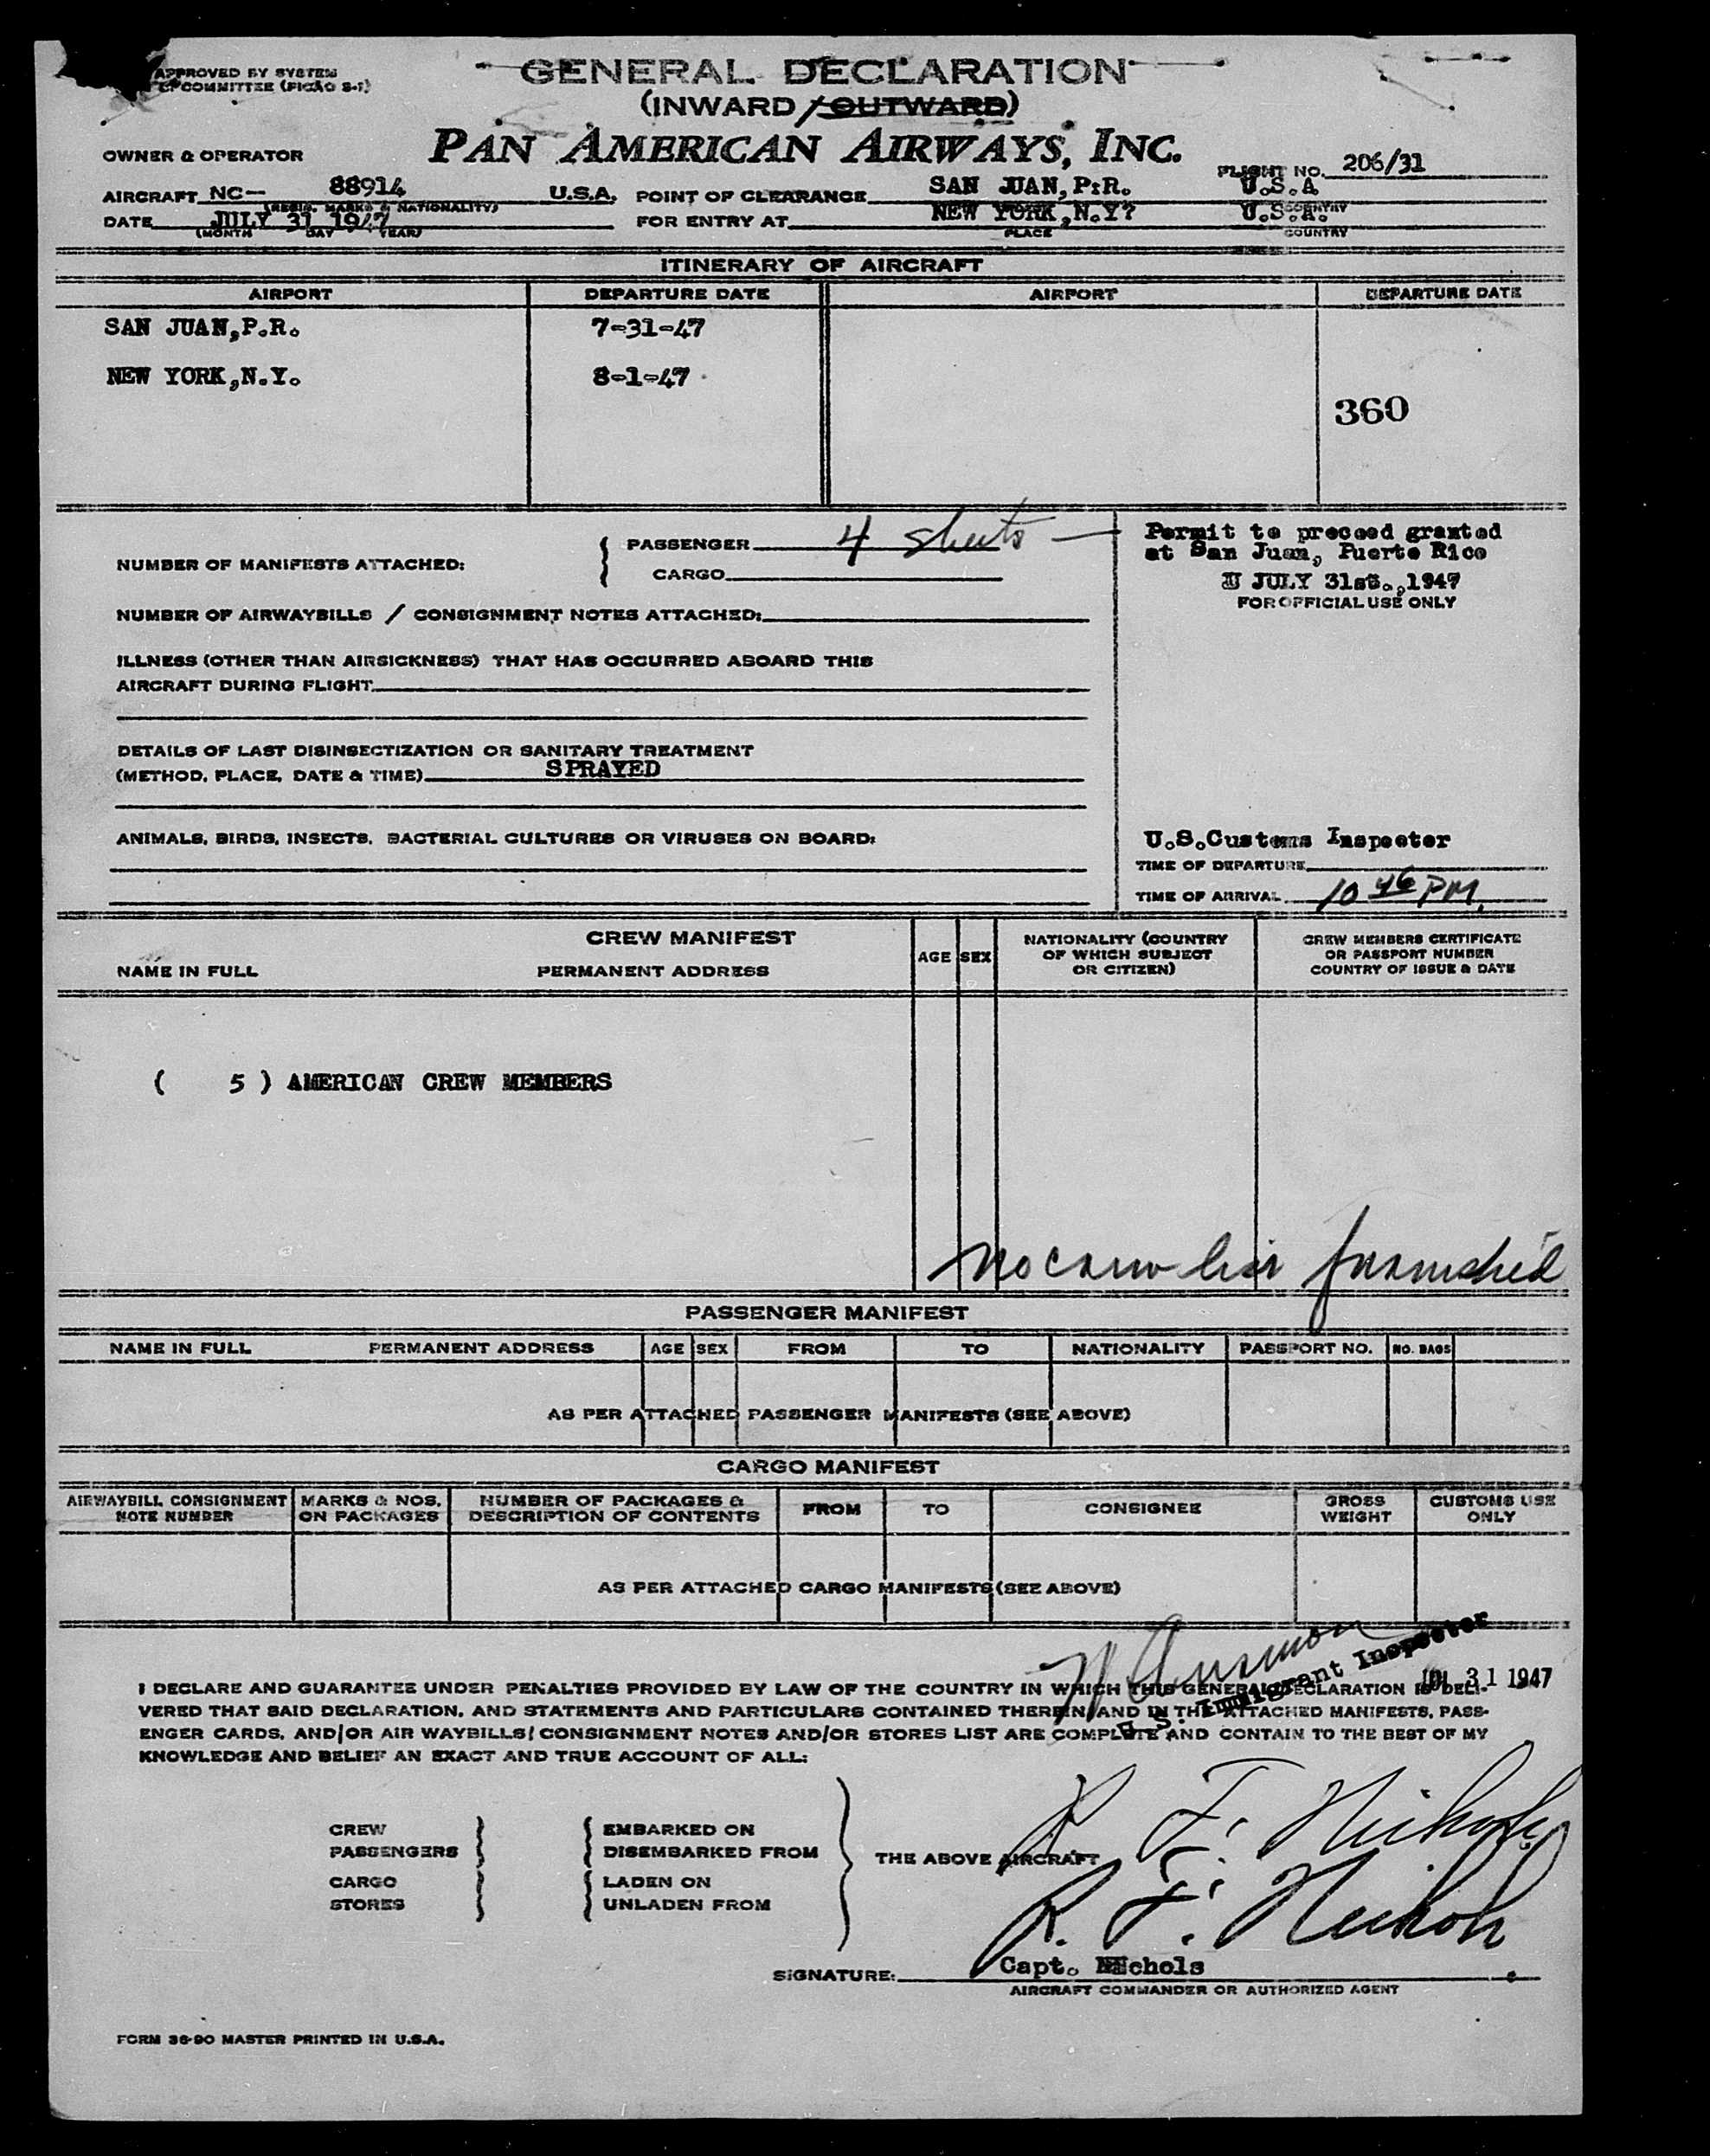 APPROVED BY SYSTEM
COMMITTEE (PICAO S-1)
GENERAL DECLARATION
(INWARD / OUTWARD)
OWNER & OPERATOR
PAN AMERICAN AIRWAYS, INC.
FLIGHT NO. 206/31
AIRCRAFT NC- 88914 U.S.A. POINT OF CLEARANCE SAN JUAN, P:R. U.S.A
(REGIS. MARKS & NATIONALITY) COUNTRY
DATE JULY 31 1947 FOR ENTRY AT NEW YORK,N.Y? U.S.A.
(MONTH DAY YEAR) PLACE COUNTRY
ITINERARY OF AIRCRAFT
AIRPORT DEPARTURE DATE AIRPORT DEPARTURE DATE
SAN JUAN,P.R. 7-31-47
NEW YORK,N.Y. 8-1-47
360
NUMBER OF MANIFESTS ATTACHED:
PASSENGER 4 sheets
CARGO
Permit to proceed granted
at San Juan, Puerto Rico
JULY 31st.,1947
FOR OFFICIAL USE ONLY
NUMBER OF AIRWAYBILLS / CONSIGNMENT NOTES ATTACHED:
ILLNESS (OTHER THAN AIRSICKNESS) THAT HAS OCCURRED ABOARD THIS
AIRCRAFT DURING FLIGHT
DETAILS OF LAST DISINSECTIZATION OR SANITARY TREATMENT
(METHOD, PLACE, DATE & TIME) SPRAYED
ANIMALS, BIRDS, INSECTS, BACTERIAL CULTURES OR VIRUSES ON BOARD:
U.S.Customs Inspector
TIME OF DEPARTURE
TIME OF ARRIVAL 10 46 PM.
CREW MANIFEST
NAME IN FULL PERMANENT ADDRESS
AGE SEX
NATIONALITY (COUNTRY
OF WHICH SUBJECT
OR CITIZEN)
CREW MEMBERS CERTIFICATE
OR PASSPORT NUMBER
COUNTRY OF ISSUE & DATE
( 5 ) AMERICAN CREW MEMBERS
No crew list furnished
PASSENGER MANIFEST
NAME IN FULL PERMANENT ADDRESS AGE SEX FROM TO NATIONALITY PASSPORT NO. NO. BAGS
AS PER ATTACHED PASSENGER MANIFESTS (SEE ABOVE)
CARGO MANIFEST
AIRWAYBILL CONSIGNMENT
NOTE NUMBER
MARKS & NOS.
ON PACKAGES
NUMBER OF PACKAGES &
DESCRIPTION OF CONTENTS
FROM
TO
CONSIGNEE
GROSS
WEIGHT
CUSTOMS USE
ONLY
AS PER ATTACHED CARGO MANIFESTS (SEE ABOVE)
U. S. Immigrant Inspector
JUL 31 1947
I DECLARE AND GUARANTEE UNDER PENALTIES PROVIDED BY LAW OF THE COUNTRY IN WHICH THIS GENERAL DECLARATION IS DELI-
VERED THAT SAID DECLARATION, AND STATEMENTS AND PARTICULARS CONTAINED THEREIN AND IN THE ATTACHED MANIFESTS, PASS-
ENGER CARDS, AND/OR AIR WAYBILLS/ CONSIGNMENT NOTES AND/OR STORES LIST ARE COMPLETE AND CONTAIN TO THE BEST OF MY
KNOWLEDGE AND BELIEF AN EXACT AND TRUE ACCOUNT OF ALL:
CREW
PASSENGERS
CARGO
STORES
EMBARKED ON
DISEMBARKED FROM
LADEN ON
UNLADEN FROM
THE ABOVE AIRCRAFT
R. F. Nichols
R. F. Nichols
Capt. Nichols
SIGNATURE:
AIRCRAFT COMMANDER OR AUTHORIZED AGENT
FORM 36-90 MASTER PRINTED IN U.S.A.